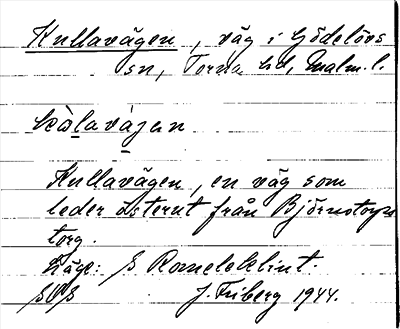 Kullavägen, väg i Gödelövs
sn, Torna hd, Malm. l.
kòlavàjen
Kullavägen, en väg som
leder österut från Björnstorps
torg.
Läge: S Romeleklint.
J. Friberg 1944.